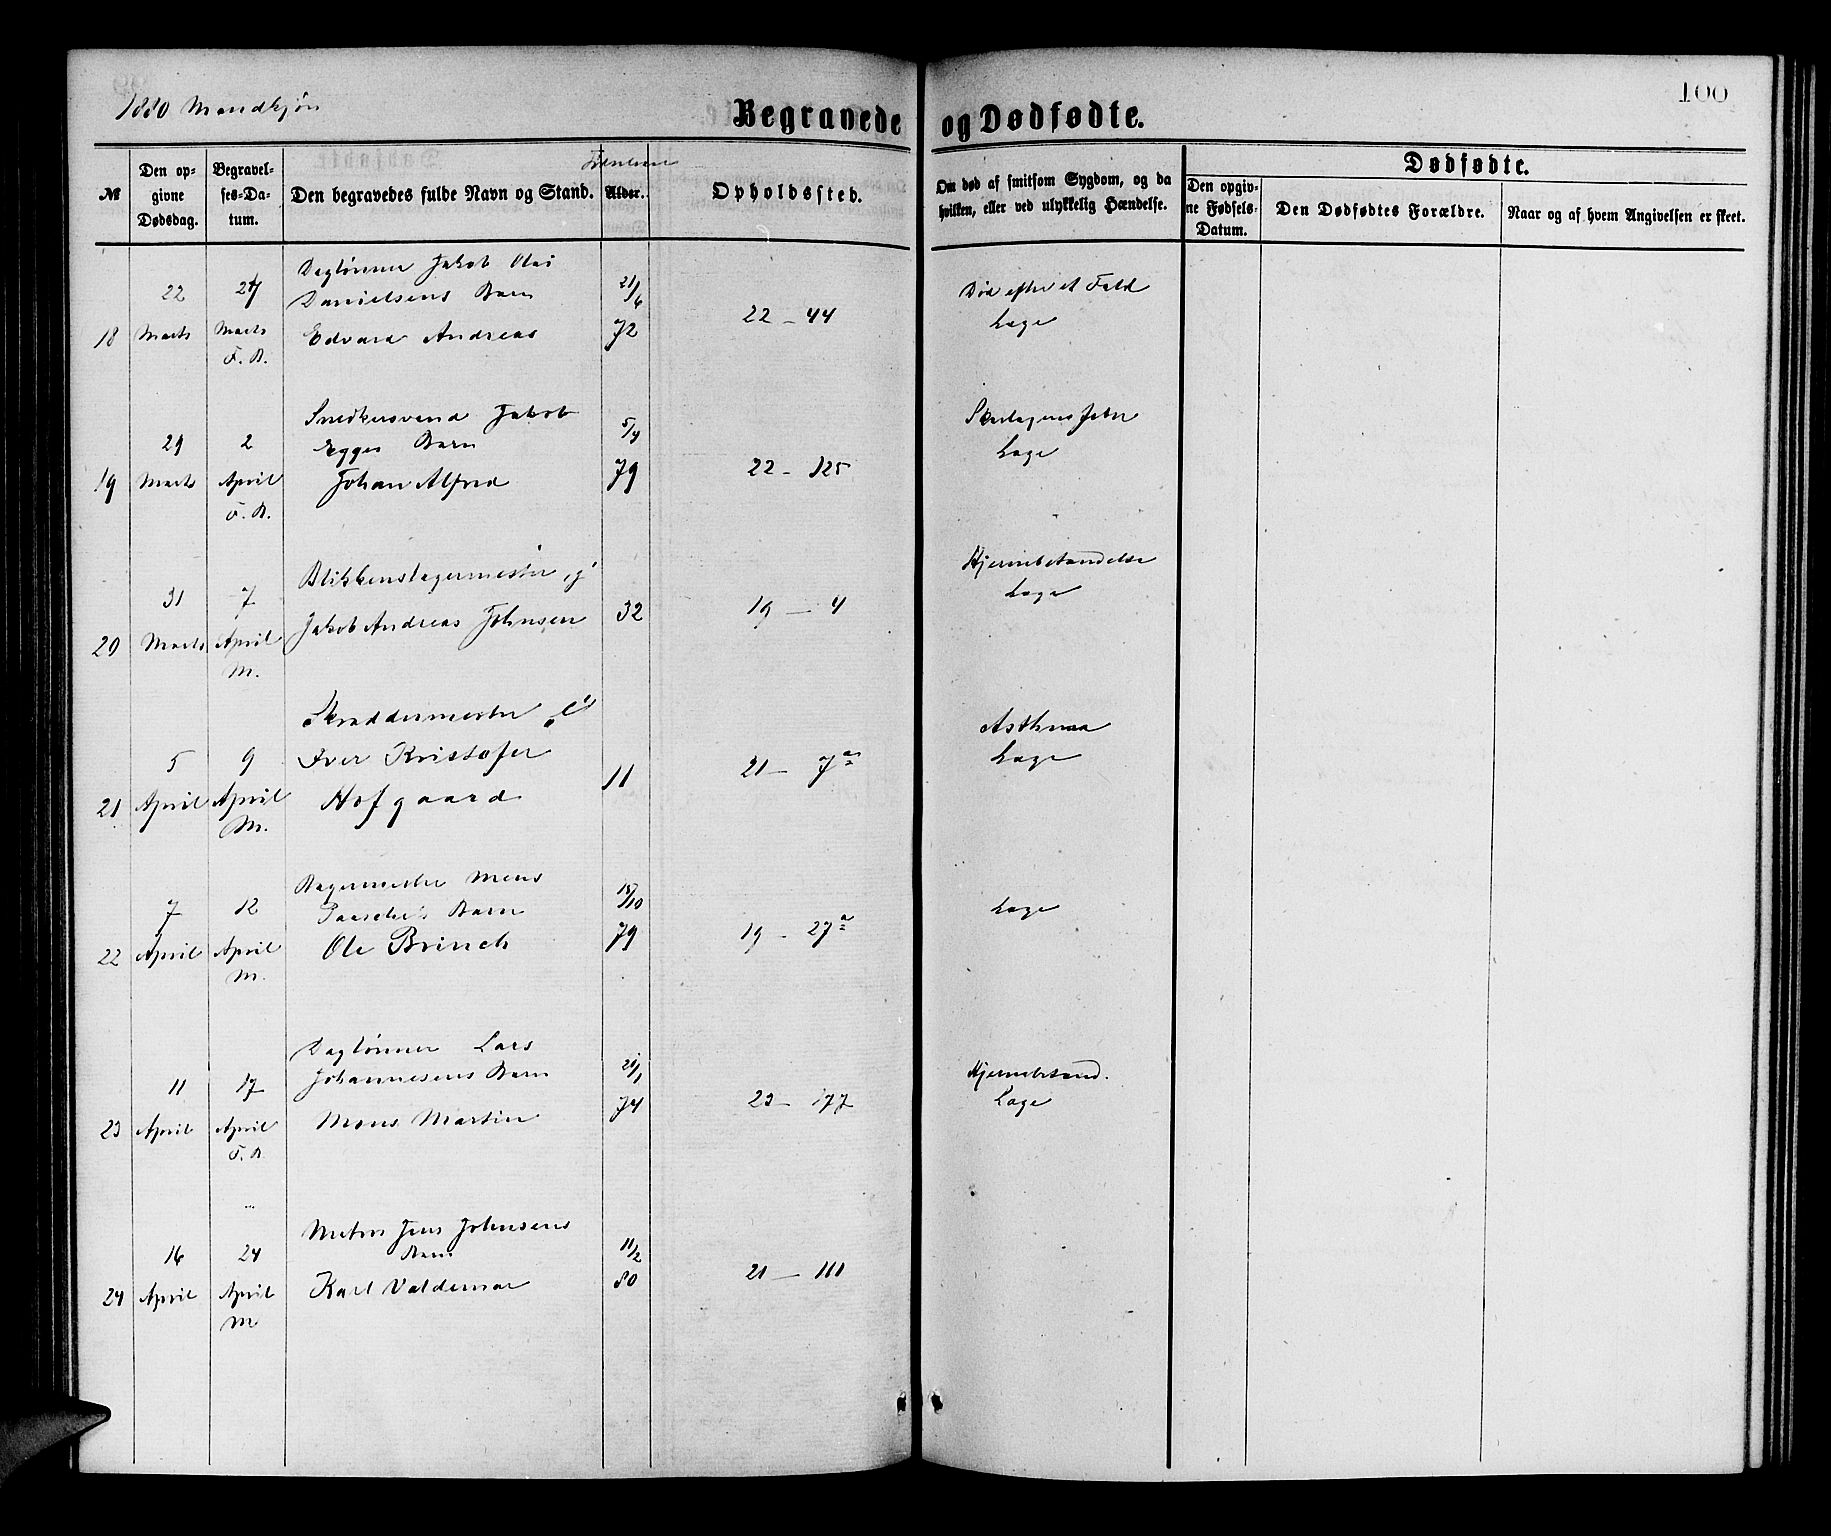 1880 Mandkjøn
100
Begravede og Dødfødte.
№
Den opgivne Dødsdag.
Begravelses-Datum.
Den begravedes fulde Navn og Stand.
Alder.
Opholdssted.
Om død af smitsom Sygdom, og da hvilken, eller ved ulykkelig Hændelse.
Dødfødte.
Den opgivne Fødsels-Datum.
Den Dødfødtes Forældre.
Naar og af hvem Angivelsen er skeet.
18 22 Marts 27 Marts F. R.
Daglønner Jakob Olai
Danielsens Barn
Edvard Andreas
21/6 72
22 - 44
Død efter et Fald
Læge
19 29 Marts 2 April F. R.
Snedkersvend Jakob
Egges Barn
Johan Alfred
5/4 79
22 - 125
Skarlagensfeber
Læge
20 31 Marts 7 April M.
Blikkenslagermester, g
Jakob Andreas Johnsen
32
19 - 4
Hjernebetændelse
Læge
21 5 April 9 April M.
Skræddermester
Iver Kristofer
Hofgaard
11
21 - 7a
Asthma
Læge
22 7 April 12 April M.
Bagermester Mons
Paasche's Barn
Ole Brinch
15/10 79
19 - 27a
Læge
23 11 April 17 April F. R.
Daglønner Lars
Johannesens Barn
Mons Martin
21/1 74
23 - 177
Hjernebetænd.
Læge
24 16 April 24 April M
Matros Jens Johnsens
Barn
Karl Valdemar
11/2 80
21 - 111